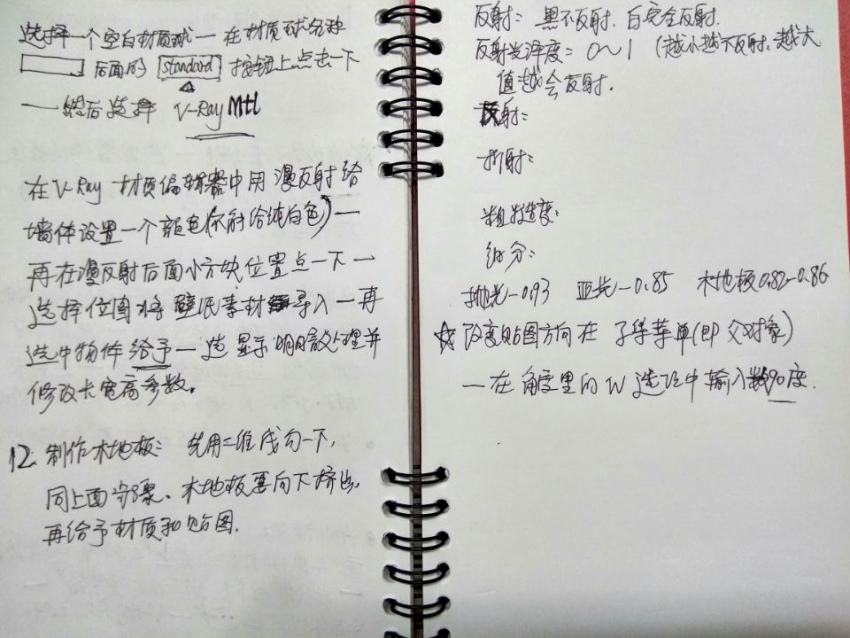 选择一个空白材质球一在材质球名称
后面的 standard 按钮上点击一下
一然后选择 V-Ray Mtl
在V-Ray 材质编辑器中用漫反射给
墙体设置一个颜色(你能给纯白色)一
再在漫反射后面小方块位置点一下一
选择位图将壁纸素材导入一再
选中物体给予一选显示明暗处理并
修改长宽高参数。
12. 制作木地板: 先用二维线勾一下,
同上面步骤、木地板要向下挤出,
再给予材质和贴图.
反射: 黑不反射. 白完全反射.
反射光泽度= 0~1 (越小越不反射. 越大
值越会反射.
反射:
折射:
粗糙度:
细分:
抛光-0.93 亚光-0.85 木地板0.82-0.86
☆改变贴图方向在 子级菜单(即父对象)
一在角度里的W选项中输入90度.